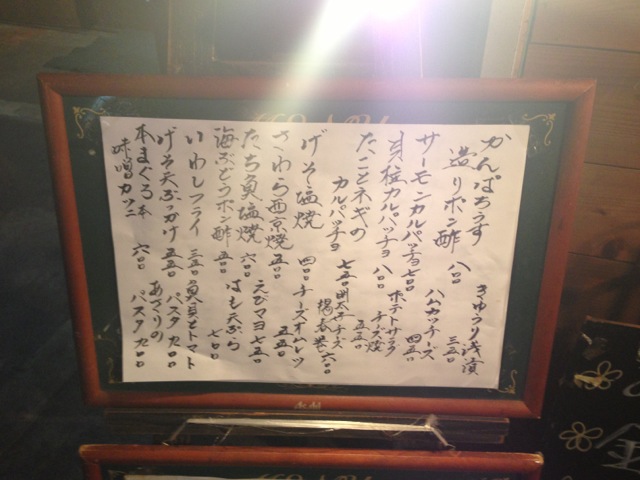 かんぱちうす
造りポン酢 八〇〇
サーモンカルパッチョ 七〇〇
貝柱カルパッチョ 八〇〇
たことネギの
カルパッチョ 七五〇
げそ塩焼 四〇〇
さわら西京焼 五五〇
たち魚塩焼 六〇〇
海ぶどうポン酢 五五〇
いわしフライ 三五〇
げそ天ぶっかけ 五五〇
本まぐろ
味噌カツ 六〇〇
きゅうり浅漬
三五〇
ハムカツチーズ
四五〇
ポテトサラダ
チーズ焼
五五〇
明太子チーズ
揚春巻 六〇〇
チーズオムレツ
五五〇
えびマヨ 七五〇
はも天ぷら
七〇〇
魚貝とトマト
パスタ 九〇〇
あさりの
パスタ 九〇〇